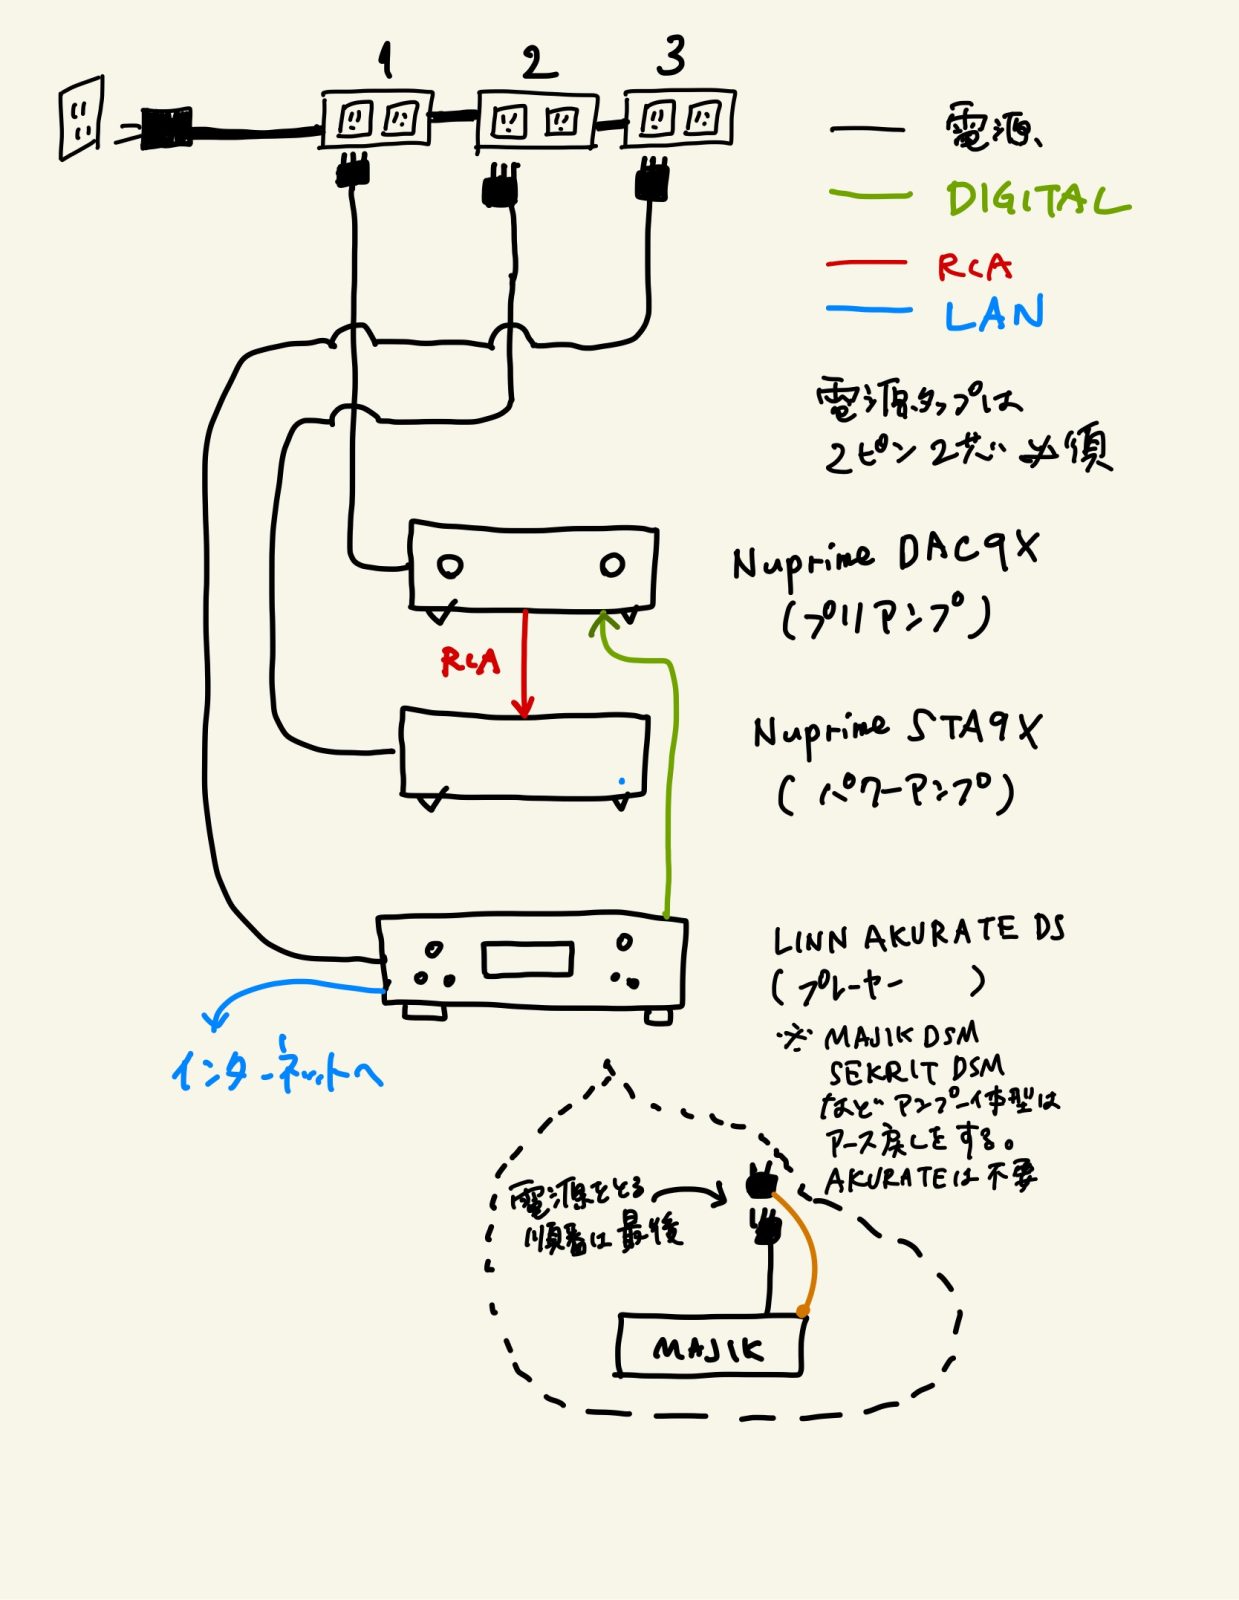 1 2 3
電源
DIGITAL
RCA
LAN
電源タップは
2ピン2芯必須
Nuprime DAC9X
(プリアンプ)
RCA
Nuprime STA9X
(パワーアンプ)
LINN AKURATE DS
(プレーヤー )
インターネットへ
※ MAJIK DSM
SEKRIT DSM
などアンプ一体型は
アース戻しをする。
AKURATEは不要
電源をとる
順番は最後
MAJIK